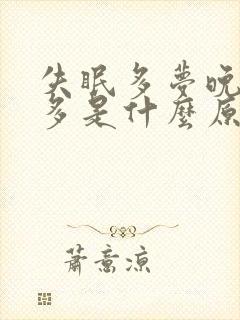 失眠多夢晚
多是什麼原
蕭意涼